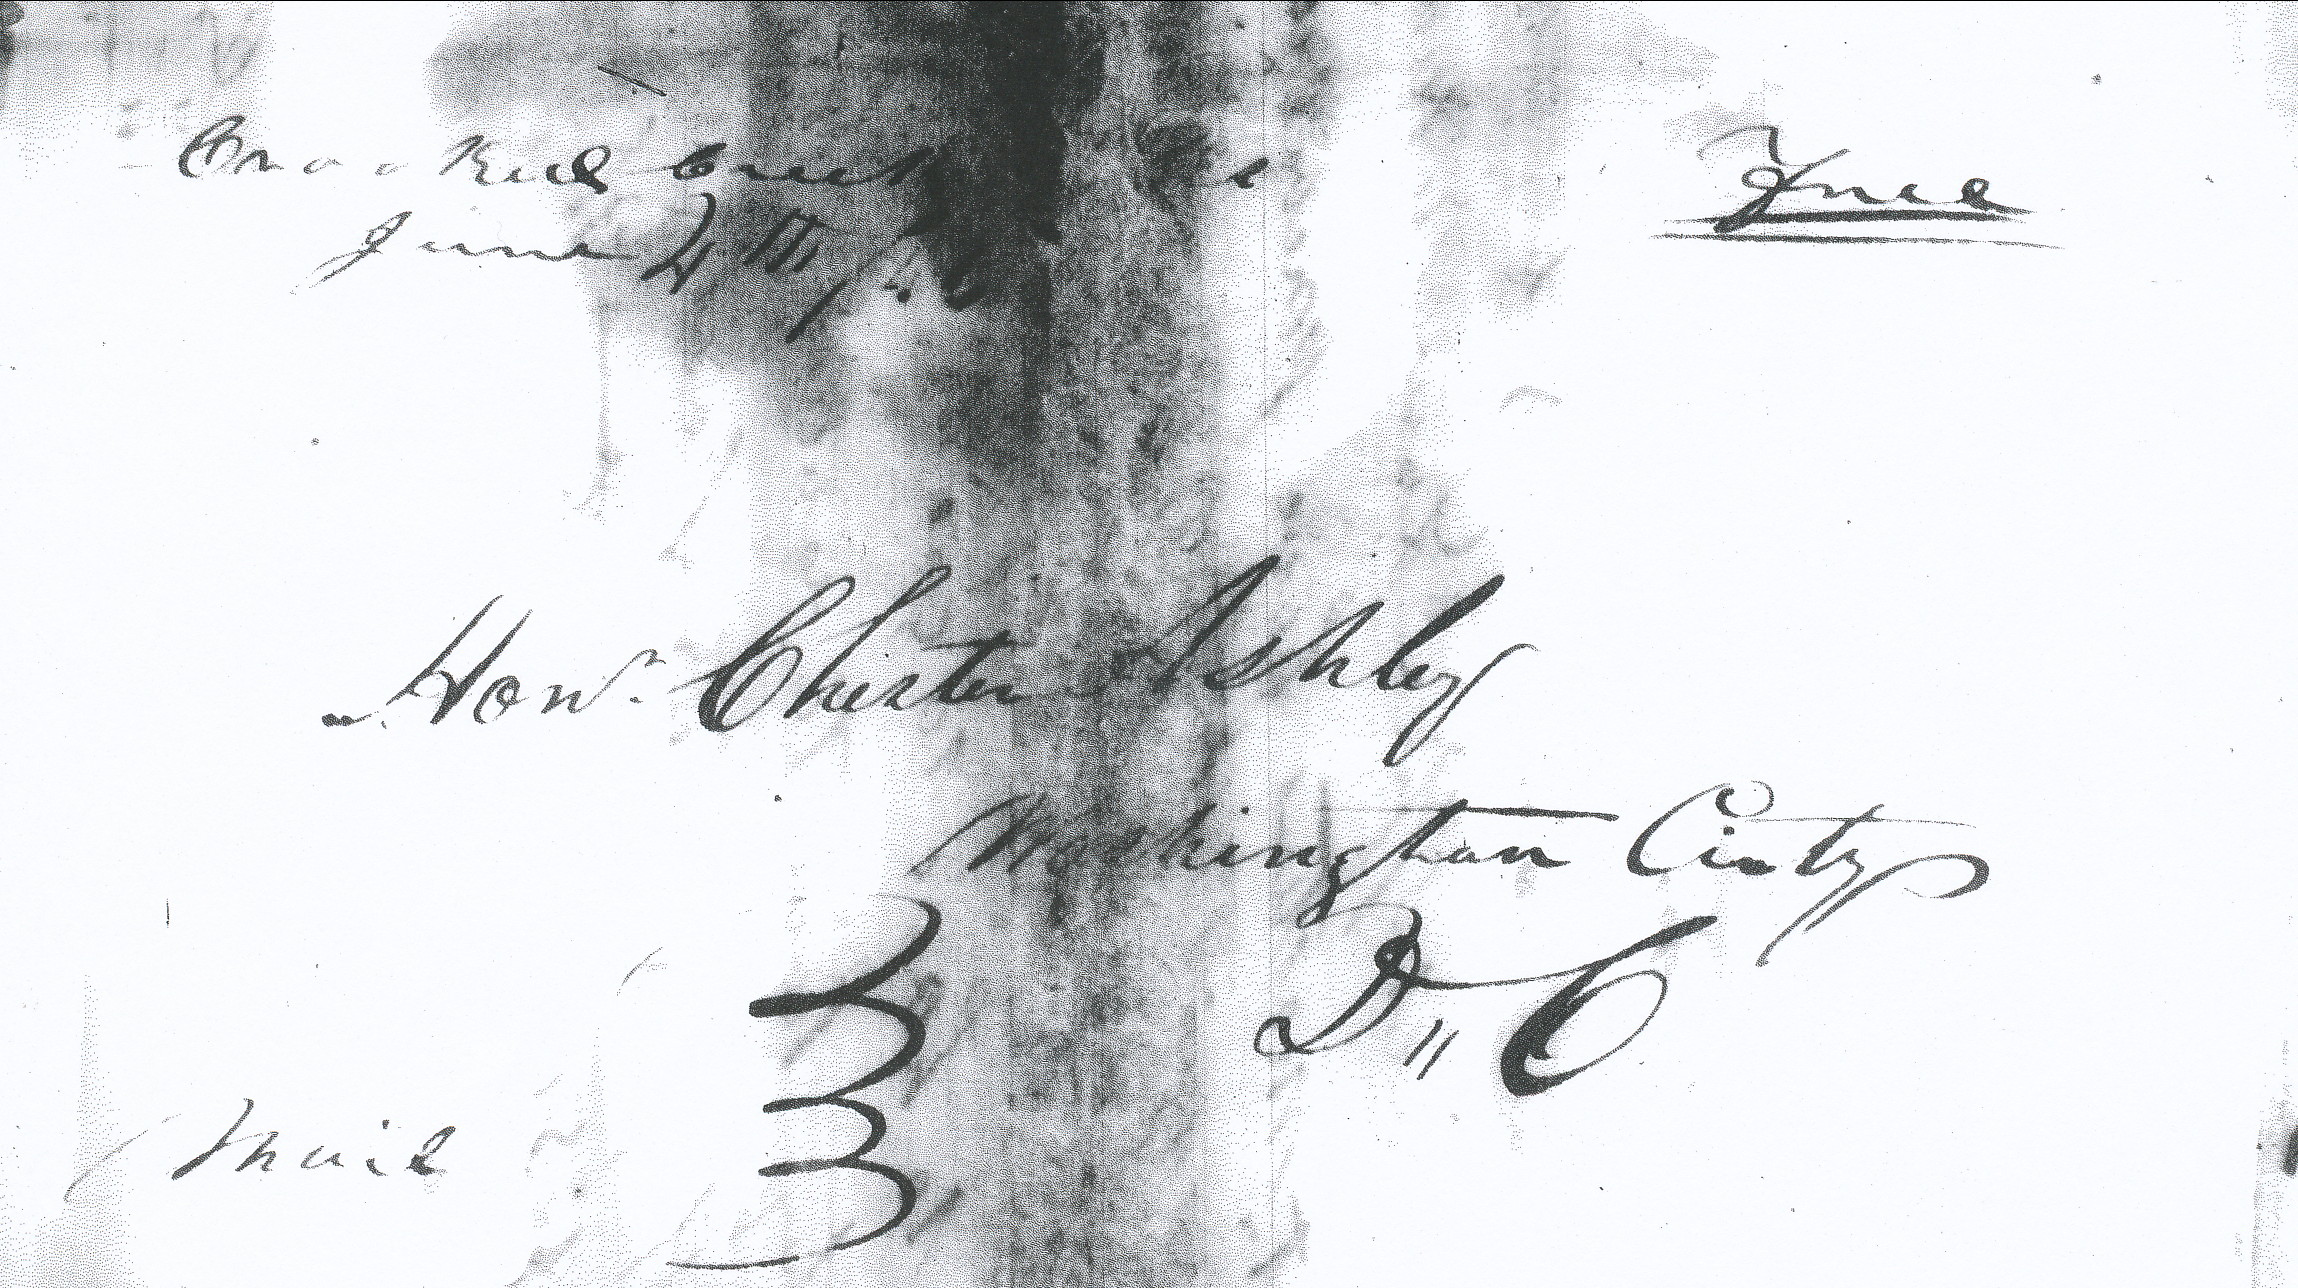 Crooked Creek
Free
June 4th
Hon. Chester Ashley
Washington City
D,, C
Mail